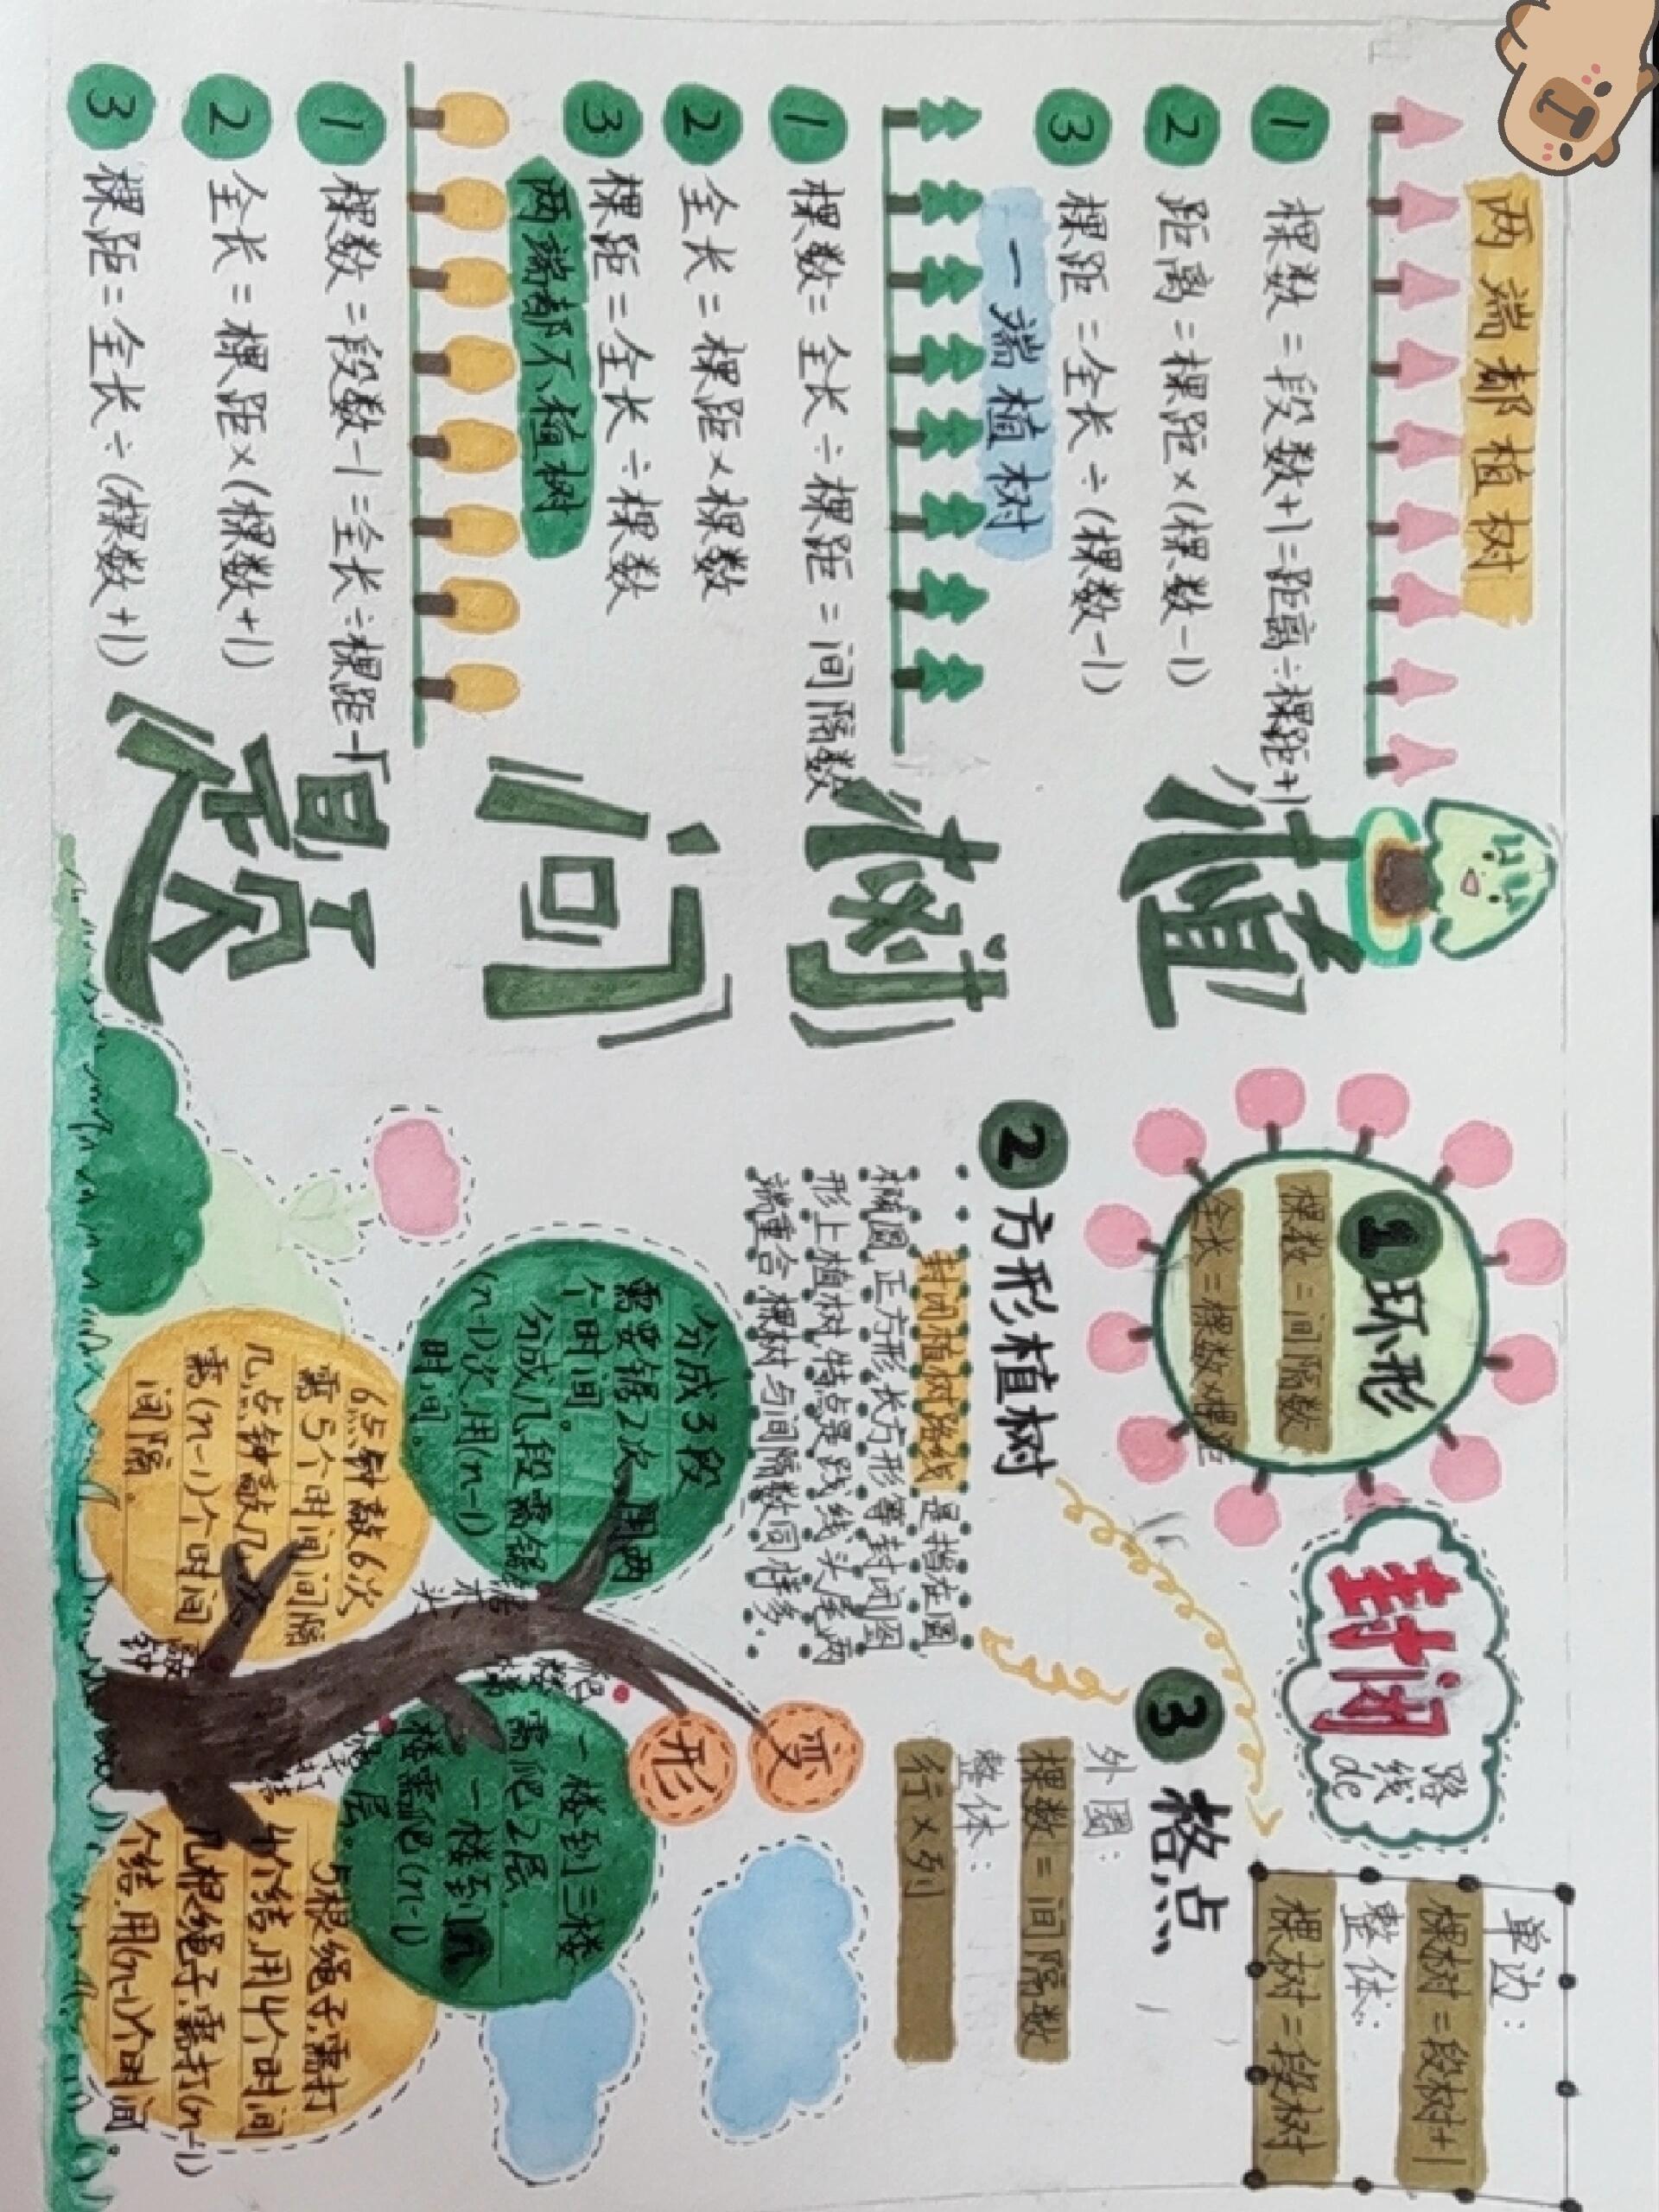 植树问题
两端都植树
1 棵数=段数+1=距离÷棵距+1
2 距离=棵距×(棵数-1)
3 棵距=全长÷(棵数-1)
一端植树
1 棵数=全长÷棵距=间隔数
2 全长=棵距×棵数
3 棵距=全长÷棵数
两端都不植树
1 棵数=段数-1=全长÷棵距-1
2 全长=棵距×(棵数+1)
3 棵距=全长÷(棵数+1)
封闭
路线
de
1 环形
棵数=间隔数
全长=棵数×棵距
2 方形植树
单边:
棵树=段树+1
整体:
棵树=段树
3 格点
外圈:
棵数=间隔数
整体:
行×列
封闭植树路线是指在圆、
椭圆、正方形、长方形等封闭图
形上植树,特点是路线头尾两
端重合,棵树与间隔数同样多.
变
形
分成3段
需要锯2次,用两
个时间。
分成几段需锯
(n-1)次,用(n-1)
时间。
锯木头
6点钟敲6次
需5个时间间隔
几点钟敲几次
需(n-1)个时间
间隔。
敲钟
一楼到三楼
需爬2层.
一楼到n
楼需爬(n-1)
层。
爬楼梯
5根绳子需打
4个结.用4个时间
几根绳子.需打(n-1)
个结.用(n-1)个时间。